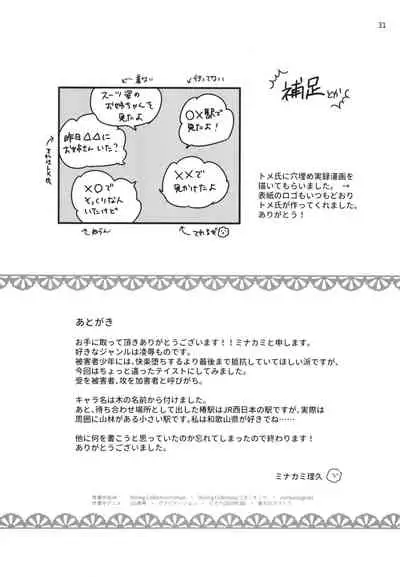 31
補足とか
←着ない
↙行ってない
スーツ姿の
お姉ちゃんを
見たよ!
○×駅で
見たよ!
昨日△△に
お姉さんいた?
×○で
そっくりな人
いたけど
××で
見かけたよ
トメ氏に穴埋め実録漫画を
描いてもらいました。 →
表紙のロゴもいつもどおり
トメ氏が作ってくれました。
ありがとう!
あとがき
お手に取って頂きありがとうございます!!ミナカミと申します。
好きなジャンルは凌辱ものです。
被害者少年には、快楽堕ちするより最後まで抵抗していてほしい派ですが、
今回はちょっと違ったテイストにしてみました。
受を被害者、攻を加害者と呼びがち。
キャラ名は木の名前から付けました。
あと、待ち合わせ場所として出した椿駅はJR西日本の駅ですが、実際は
周囲に山林がある小さい駅です。私は和歌山県が好きでね……
他に何を書こうと思っていたのか忘れてしまったので終わります!
ありがとうございました。
ミナカミ理久